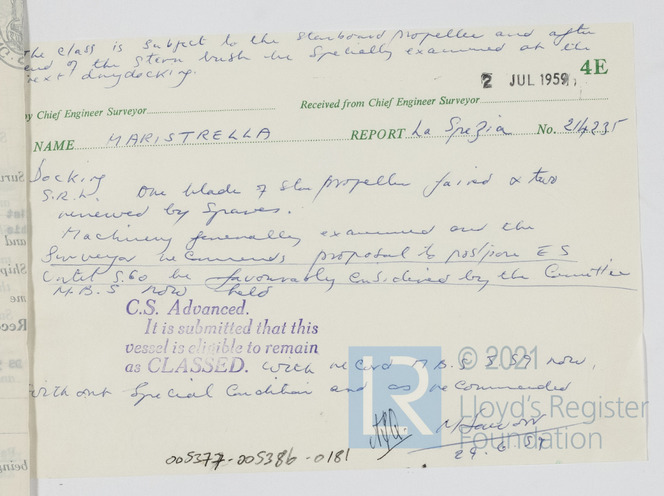 The class is subject to the starboard propeller and after
end of the stern bush be specially examined at the
next drydocking.
2 JUL 1959
4E
by Chief Engineer Surveyor
Received from Chief Engineer Surveyor
NAME MARISTRELLA REPORT La Spezia No. 214235
Docking
S.R.L. One blade of star propeller faired & two
renewed by Spares.
Machinery generally examined and the
Surveyor recommends proposal to postpone ES
until 5.60 be favourably considered by the Committee
M.B.S now held
C.S. Advanced.
It is submitted that this
vessel is eligible to remain
as CLASSED. with record M.B.S 5,59 now,
without Special Condition and as recommended
29.6.59
005377-005386-0181
LR
© 2021
Lloyd's Register
Foundation